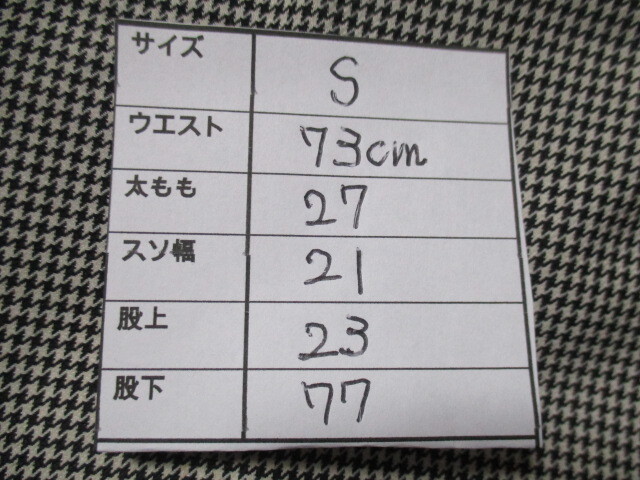 サイズ S
ウエスト 73cm
太もも 27
スソ幅 21
股上 23
股下 77